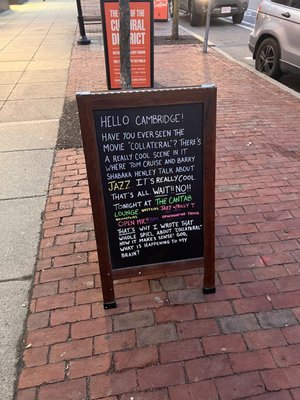 THE
OF THE
CULTURAL
DISTRICT
HELLO CAMBRIDGE!
HAVE YOU EVER SEEN THE
MOVIE "COLLATERAL"? THERE'S
A REALLY COOL SCENE IN IT
WHERE TOM CRUISE AND BARRY
SHABAKA HENLEY TALK ABOUT
JAZZ IT'S REALLY COOL
THAT'S ALL WAIT!! NO!!
TONIGHT AT THE CANTAB
LOUNGE UPSTAIRS JAZZ W/BILLY T
DOWNSTAIRS
OPEN MIC TRIVIA
THAT'S WHY I WROTE THAT
WHOLE SPIEL ABOUT "COLLATERAL"
NOW IT MAKES SENSE! GOD,
WHAT IS HAPPENING TO MY
BRAIN?